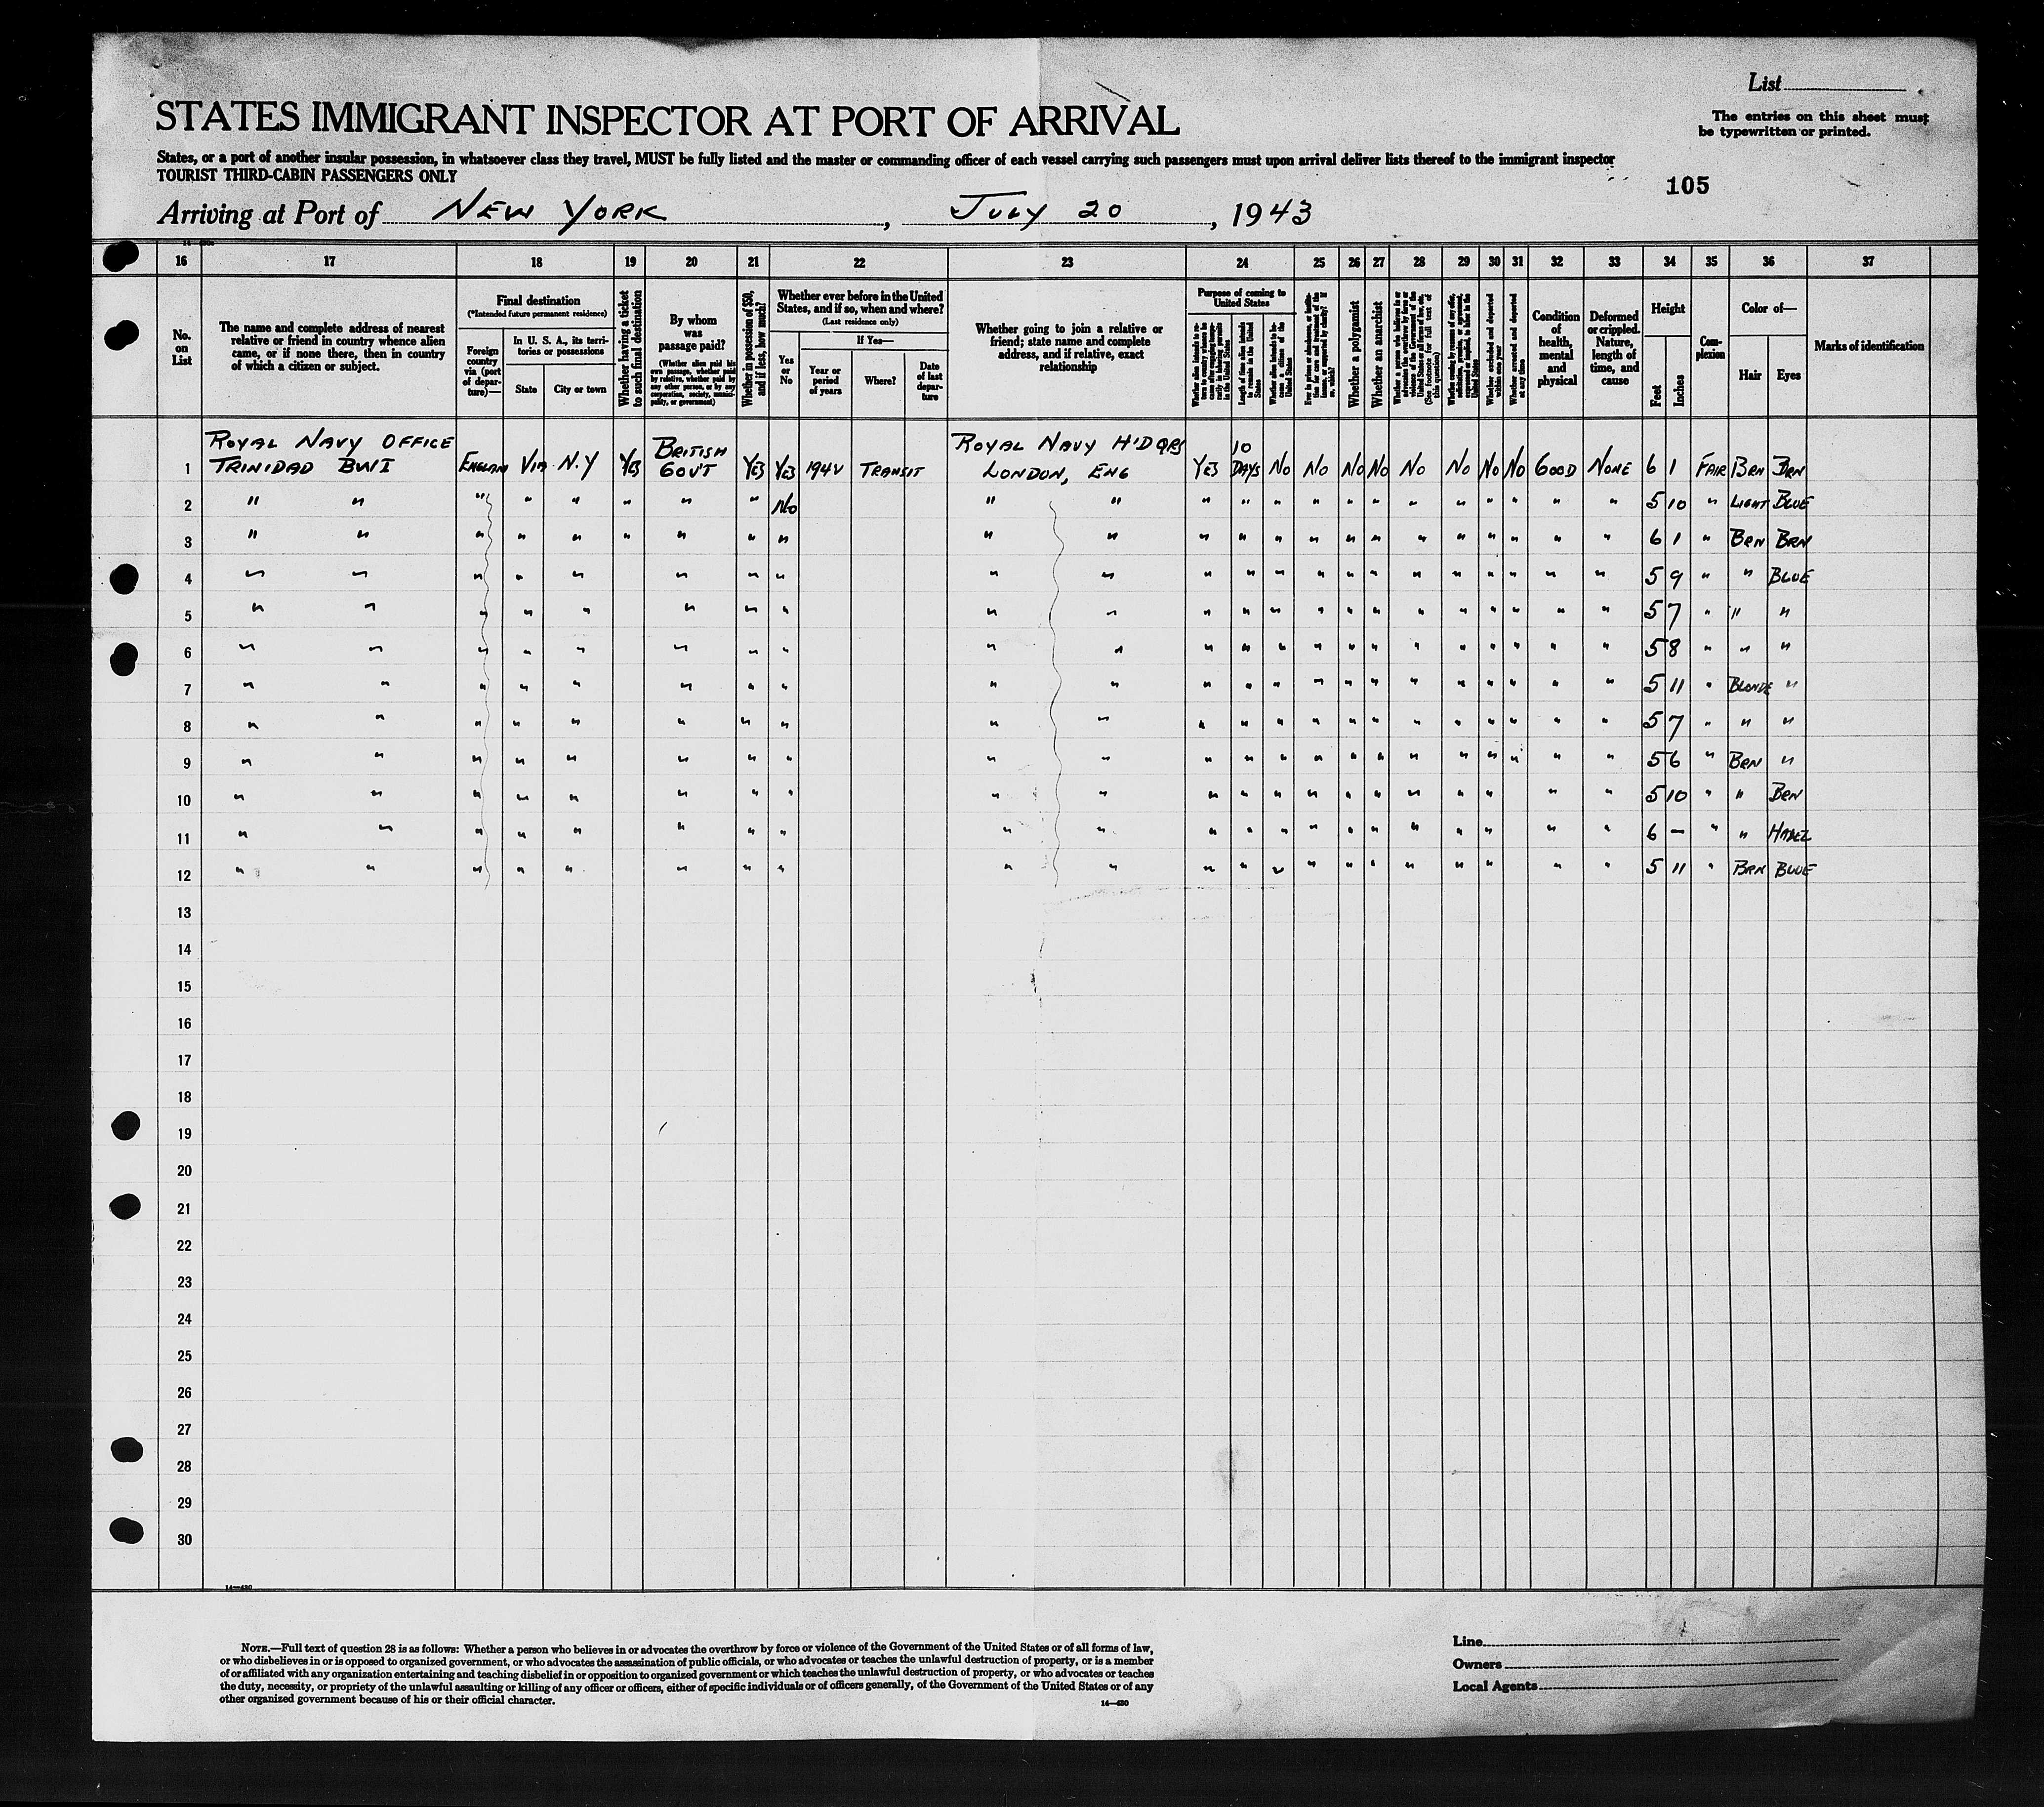 List
The entries on this sheet must
be typewritten or printed.
STATES IMMIGRANT INSPECTOR AT PORT OF ARRIVAL
States, or a port of another insular possession, in whatsoever class they travel, MUST be fully listed and the master or commanding officer of each vessel carrying such passengers must upon arrival deliver lists thereof to the immigrant inspector
TOURIST THIRD-CABIN PASSENGERS ONLY
105
Arriving at Port of NEW YORK, JULY 20, 1943
16 17 18 19 20 21 22 23 24 25 26 27 28 29 30 31 32 33 34 35 36 37
No. on List
The name and complete address of nearest
relative or friend in country whence alien
came, or if none there, then in country
of which a citizen or subject.
Final destination
(*Intended future permanent residence)
Foreign country via (port of departure)—
In U. S. A., its territories or possessions
State
City or town
Whether having a ticket to such final destination
By whom was passage paid?
(Whether alien paid his own passage, whether paid by relative, whether paid by any other person, or by any corporation, society, municipality, or government)
Whether in possession of $50, and if less, how much?
Whether ever before in the United States, and if so, when and where?
(Last residence only)
Yes or No
If Yes—
Year or period of years
Where?
Date of last departure
Whether going to join a relative or
friend; state name and complete
address, and if relative, exact
relationship
Purpose of coming to United States
Length of time alien intends to remain in the United States
Whether alien intends to become a citizen of the United States
Whether a polygamist
Whether an anarchist
(See footnote for full text of this question)
Whether excluded and deported within one year
Whether arrested and deported at any time
Condition of health, mental and physical
Deformed or crippled. Nature, length of time, and cause
Height
Feet
Inches
Complexion
Color of—
Hair
Eyes
Marks of identification
1 ROYAL NAVY OFFICE TRINIDAD BWI ENGLAND VIA N.Y YES BRITISH GOV'T YES YES 194V TRANSIT ROYAL NAVY H'DQRS LONDON, ENG YES 10 DAYS NO NO NO NO NO NO NO NO GOOD NONE 6 1 FAIR BRN BRN
2 " " " " " " " " NO " " " " " " " " " " " " " " 5 10 " LIGHT BLUE
3 " " " " " " " " " " " " " " " " " " " " " " " 6 1 " BRN BRN
4 " " " " " " " " " " " " " " " " " " " " " " 5 9 " " BLUE
5 " " " " " " " " " " " " " " " " " " " " " " 5 7 " " "
6 " " " " " " " " " " " " " " " " " " " " " " 5 8 " " "
7 " " " " " " " " " " " " " " " " " " " " " " 5 11 " BLONDE "
8 " " " " " " " " " " " " " " " " " " " " " " 5 7 " " "
9 " " " " " " " " " " " " " " " " " " " " " " 5 6 " BRN "
10 " " " " " " " " " " " " " " " " " " " " " 5 10 " " BRN
11 " " " " " " " " " " " " " " " " " " " " " 6 — " " HAZEL
12 " " " " " " " " " " " " " " " " " " " " " 5 11 " BRN BLUE
13
14
15
16
17
18
19
20
21
22
23
24
25
26
27
28
29
30
14—430
NOTE.—Full text of question 28 is as follows: Whether a person who believes in or advocates the overthrow by force or violence of the Government of the United States or of all forms of law,
or who disbelieves in or is opposed to organized government, or who advocates the assassination of public officials, or who advocates or teaches the unlawful destruction of property, or is a member
of or affiliated with any organization entertaining and teaching disbelief in or opposition to organized government or which teaches the unlawful destruction of property, or who advocates or teaches
the duty, necessity, or propriety of the unlawful assaulting or killing of any officer or officers, either of specific individuals or of officers generally, of the Government of the United States or of any
other organized government because of his or their official character.
14—430
Line
Owners
Local Agents